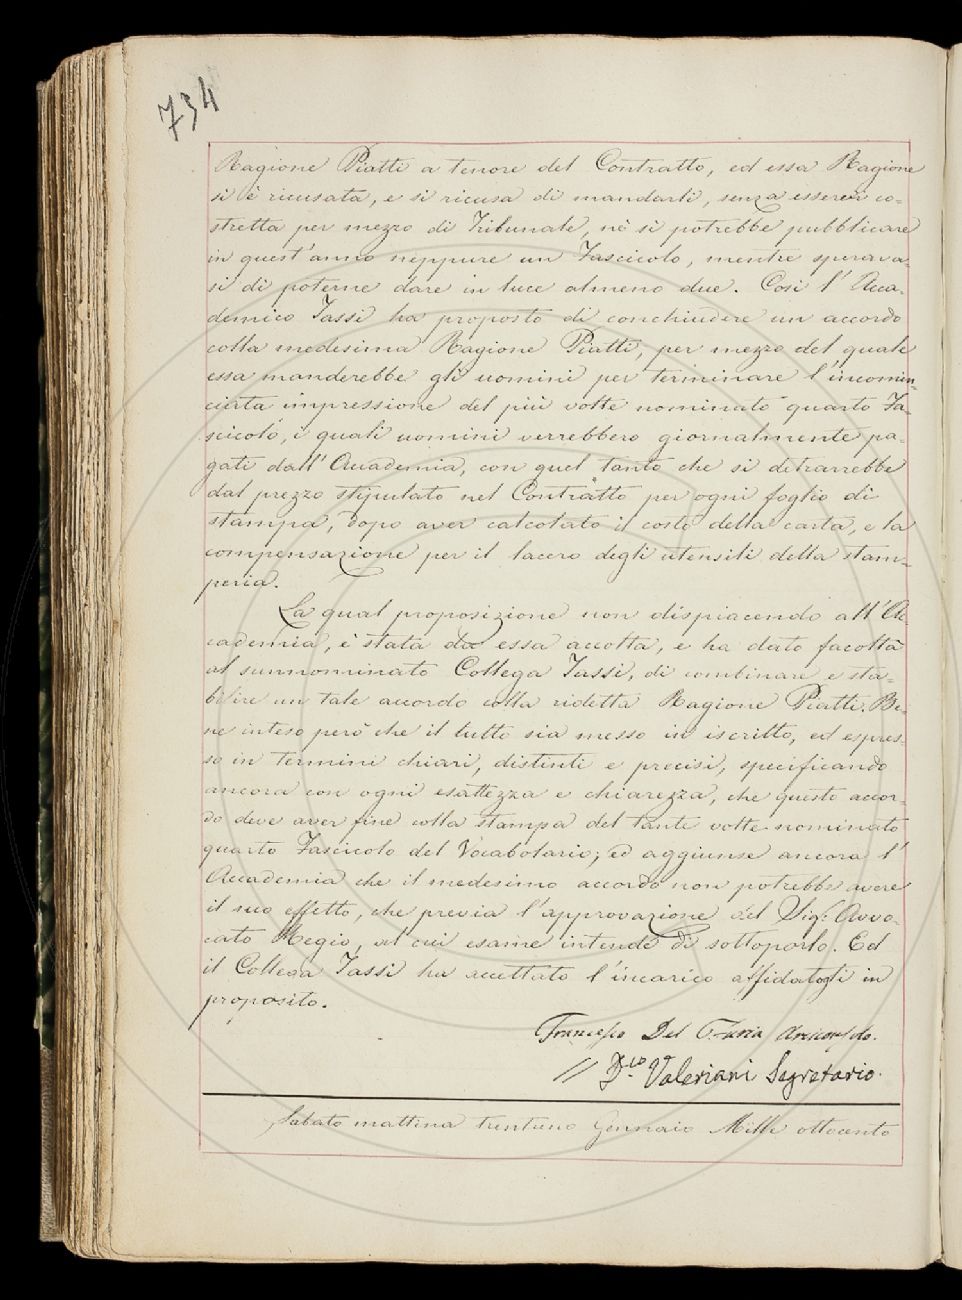 734
Ragione Piatti a tenore del Contratto, ed essa Ragione
si è ricusata, e si ricusa di mandarli, senza esservi co-
stretta per mezzo di Tribunale, nè si potrebbe pubblicare
in quest'anno neppure un Fascicolo, mentre sperava-
si di poterne dare in luce almeno due. Così l'Acca-
demico Tassi ha proposto di conchiudere un accordo
colla medesima Ragione Piatti, per mezzo del quale
essa manderebbe gli uomini per terminare l'incomin-
ciata impressione del più volte nominato quarto Fa-
scicolo, i quali uomini verrebbero giornalmente pa-
gati dall'Accademia, con quel tanto che si detrarrebbe
dal prezzo stipulato nel Contratto per ogni foglio di
stampa, dopo aver calcolato il costo della carta, e la
compensazione per il lacero degli utensili della stam-
peria.
La qual proposizione non dispiacendo all'Ac
cademia, è stata da essa accolta, e ha dato facoltà
al sunnominato Collega Tassi, di combinare e sta-
bilire un tale accordo colla ridetta Ragione Piatti. Be-
ne inteso però che il tutto sia messo in iscritto, ed espres-
so in termini chiari, distinti e precisi, specificando
ancora con ogni esattezza e chiarezza, che questo accor-
do deve aver fine colla stampa del tante volte nominato
quarto Fascicolo del Vocabolario; ed aggiunse ancora l'
Accademia che il medesimo accordo non potrebbe avere
il suo effetto, che previa l'approvazione del Sig.r Avvo-
cato Regio, al cui esame intende di sottoporlo. Ed
il Collega Tassi ha accettato l'incarico affidatogli in
proposito.
Francesco Del Furia Arciconsolo.
// D.co Valeriani Segretario.
Sabato mattina trentuno Gennaio Mille ottocento